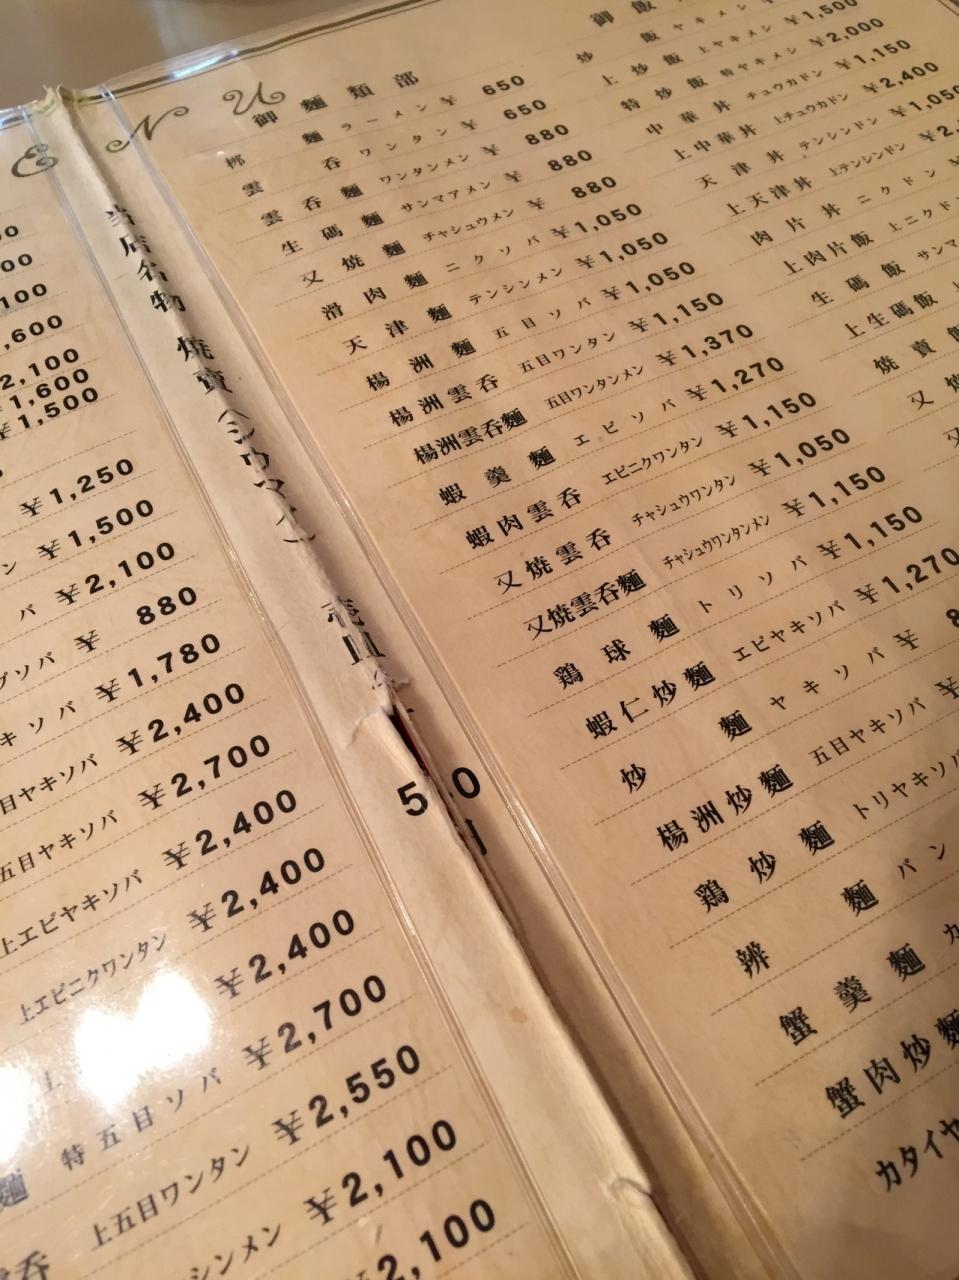 ENU
00
00
100
,600
2,100
¥1,600
¥1,500
¥1,250
ン ¥1,500
バ ¥2,100
ソバ ¥ 880
キソバ ¥1,780
目ヤキソバ ¥2,400
五目ヤキソバ ¥2,700
上エビヤキソバ ¥2,400
上エビニクワンタン ¥2,400
上 ¥2,400
麵 特五目ソバ ¥2,700
呑 上五目ワンタン ¥2,550
シンメン ¥2,100
2,100
当店名物 焼賣(シウマイ) 壱皿
御麵類部
麵 ラーメン ¥ 650
雲呑 ワンタン ¥ 650
雲呑麵 ワンタンメン ¥ 880
生碼麵 サンマアメン ¥ 880
叉焼麵 チャシュウメン ¥ 880
滑肉麵 ニクソバ ¥1,050
天津麵 テンシンメン ¥1,050
楊洲麵 五目ソバ ¥1,050
楊洲雲呑 五目ワンタン ¥1,150
楊洲雲呑麵 五目ワンタンメン ¥1,370
蝦羹麵 エビソバ ¥1,270
蝦肉雲呑 エビニクワンタン ¥1,150
叉焼雲呑 チャシュウワンタン ¥1,050
叉焼雲呑麵 チャシュウワンタンメン ¥1,150
鶏球麵 トリソバ ¥1,150
蝦仁炒麵 エビヤキソバ ¥1,270
炒麵 ヤキソバ ¥ 8
楊洲炒麵 五目ヤキソバ ¥
鶏炒麵 トリヤキソバ
辨麵 バン
蟹羹麵 カ
蟹肉炒麵
カタイヤ
御飯
炒飯 ヤキメシ ¥
上炒飯 上ヤキメン ¥1,500
特炒飯 特ヤキメン ¥2,000
中華丼 チュウカドン ¥1,150
上中華丼 上チュウカドン ¥2,400
天津丼 テンシンドン ¥1,050
上天津丼 上テンシンドン ¥2,
肉片丼 ニクドン ¥
上肉片飯 上ニクド
生碼飯 サンマ
上生碼飯 上
焼賣飯
叉焼
叉